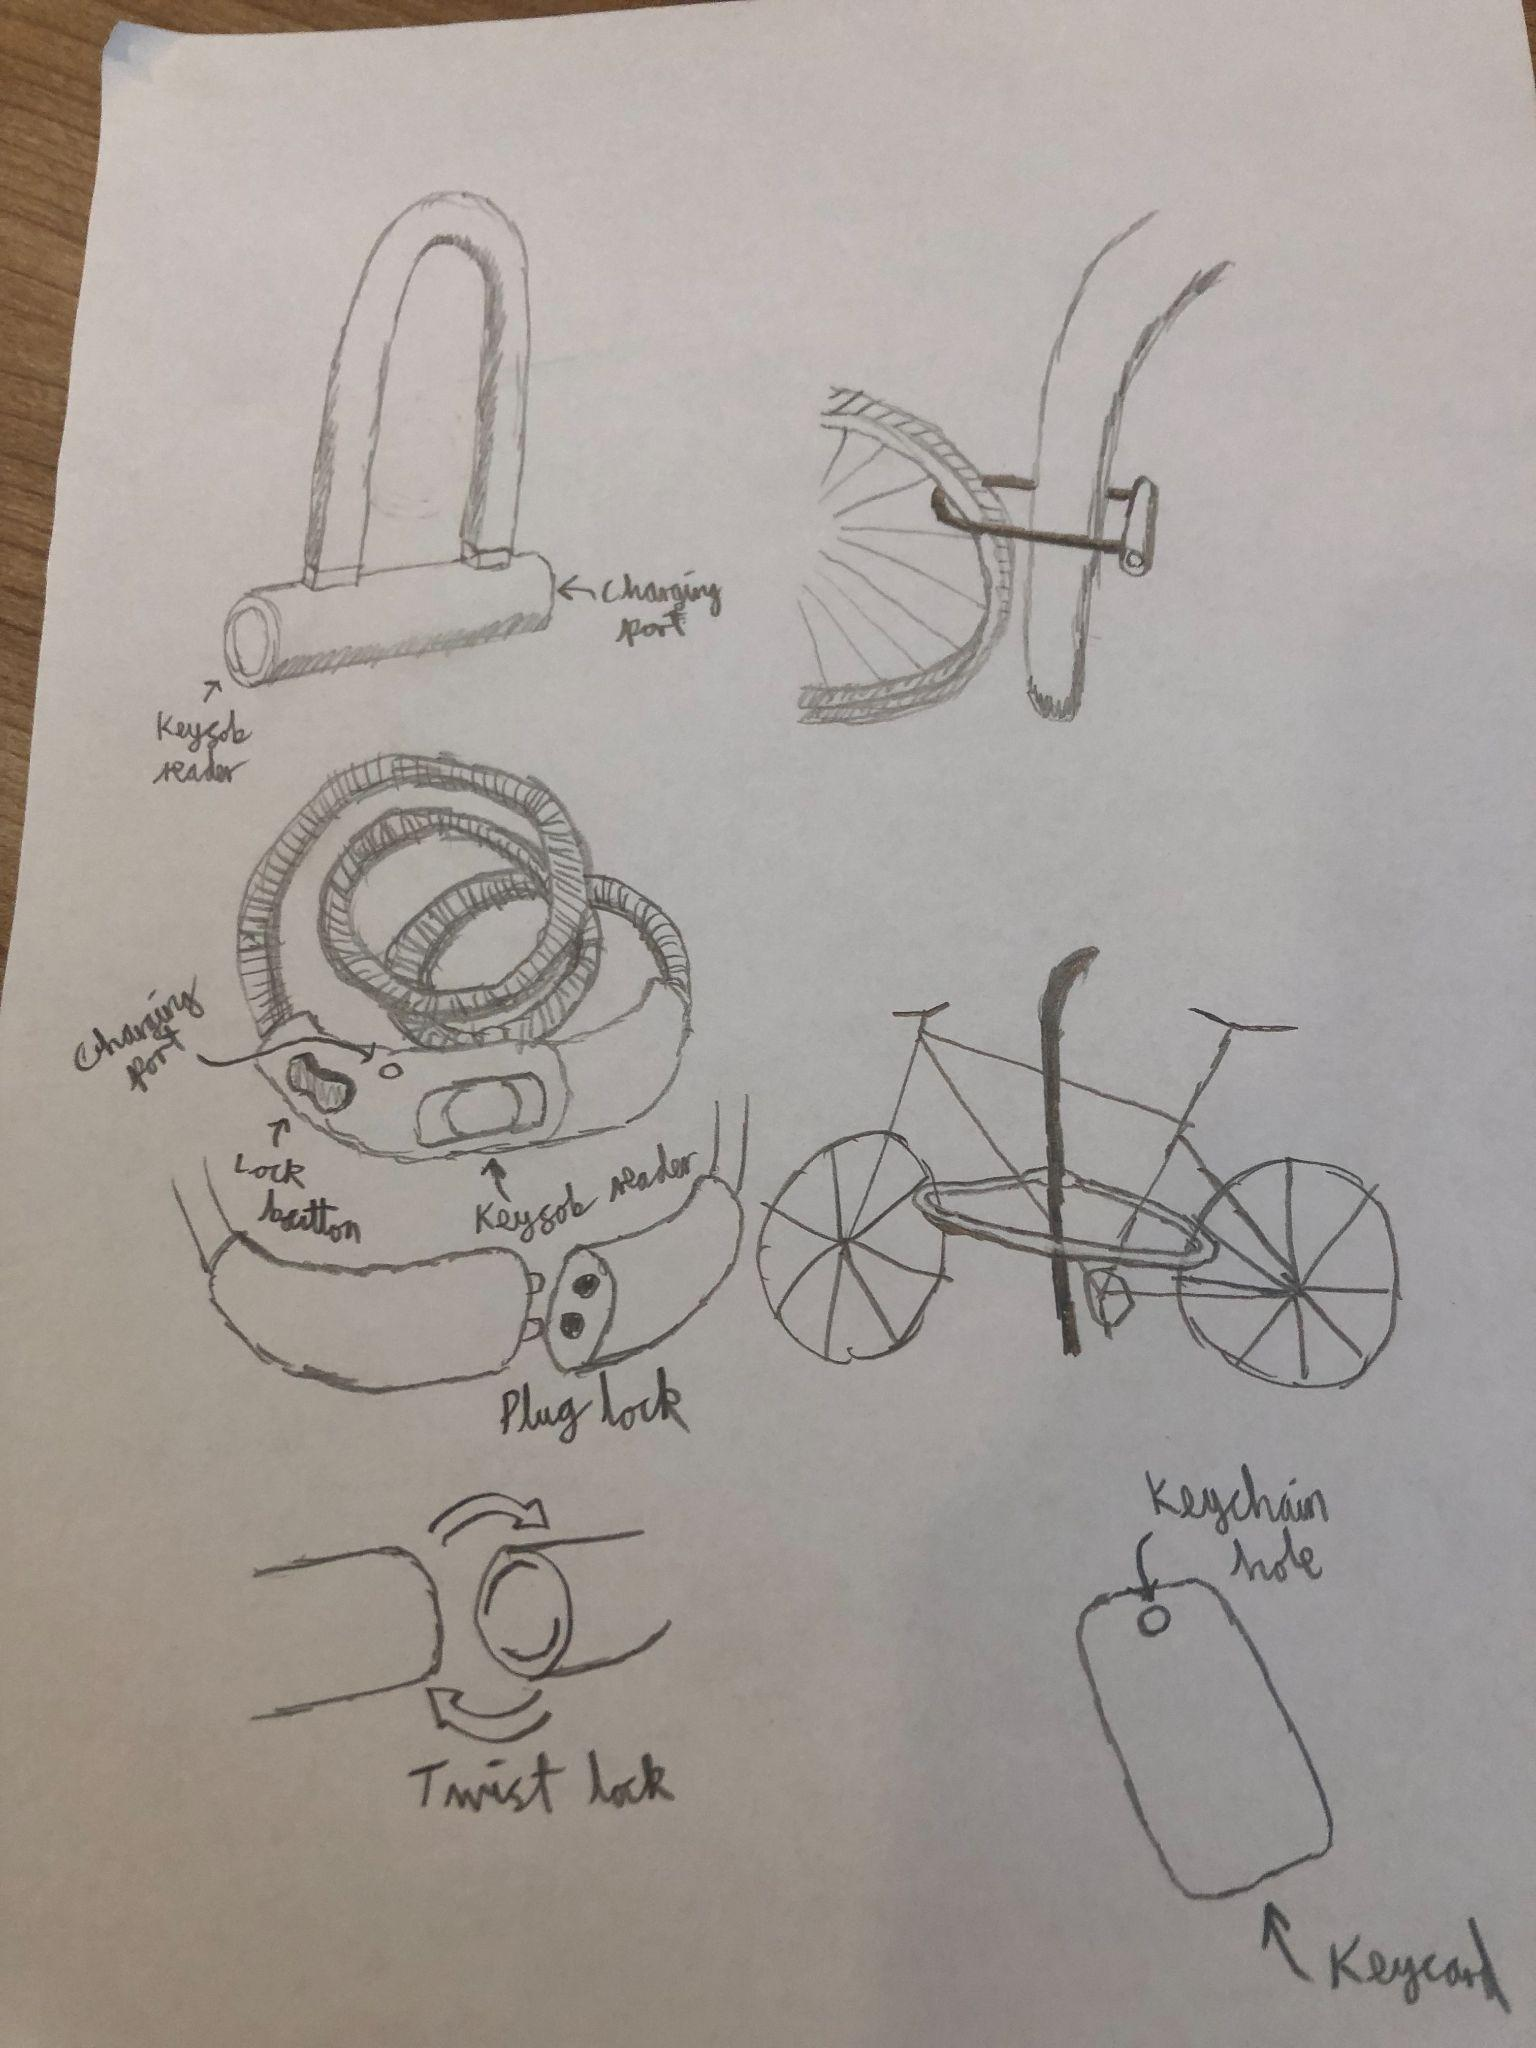 Charging
port
Keyfob
reader
Charging
port
Lock
button
Keyfob reader
Plug lock
Keychain
hole
Twist lock
Keycard